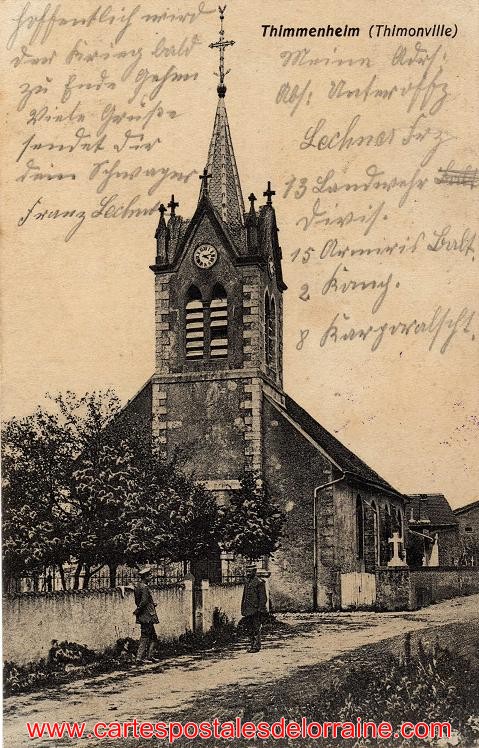 Thimmenheim (Thimonville)
hoffentlich wird
der Krieg bald
zu Ende gehen
Viele Grüße
sendet dir
dein Schwager
Franz Lechner
Meine Adrs:
Abs: Unteroffz
Lechner Frz
13 Landwehr
Divis.
15 Armiris Batl.
2 Komp.
8 Korporalscht.
www.cartespostalesdelorraine.com